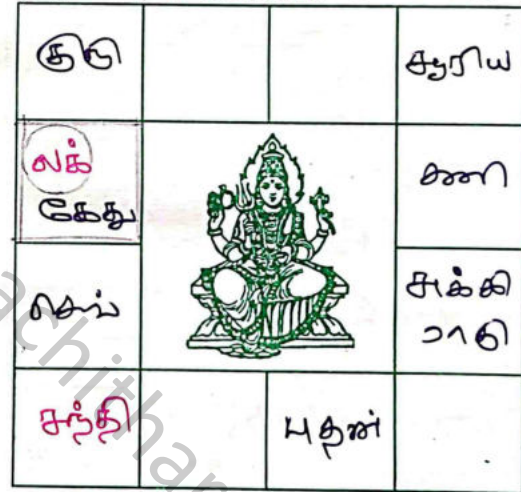 குரு
சூரிய
லக்
கேது
சனி
செவ்
சுக்கி
ராகு
சந்தி
புதன்